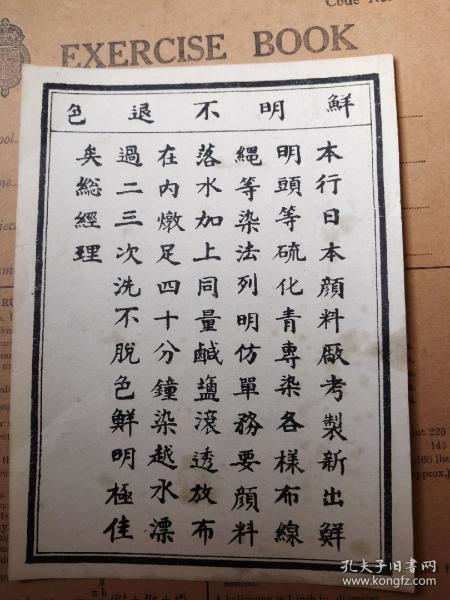 Code No.
EXERCISE BOOK
鮮明不退色
本行日本顔料厰考製新出鮮
明頭等硫化青專染各樣布線
繩等染法列明仿單務要顔料
落水加上同量鹹鹽滾透放布
在内燉足四十分鐘染越水漂
過二三次洗不脱色鮮明極佳
矣総經理
out 225
145
165 lbs
approx.)
孔夫子旧書网
www.kongfz.com